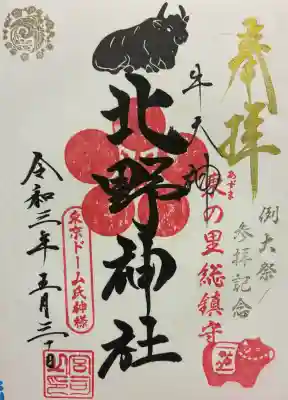 奉拝
例大祭/
参拝記念
牛天神
あずま
東の里総鎮守
北野神社
東京ドーム氏神様
令和三年五月三十日